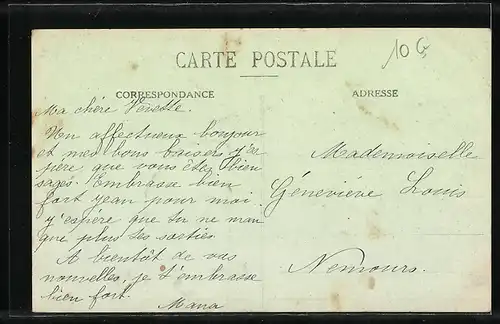 10 G
CARTE POSTALE
CORRESPONDANCE
ADRESSE
Ma chère
Un affectueux bonjour
et mes bons baisers j'es
père que vous êtes bien
sages. Embrasse bien
fort Jean pour moi
j'espère que tu ne man
que plus tes sorties
A bientôt de vos
nouvelles, je t'embrasse
bien fort.
Mana
Mademoiselle
Géneviève Louis
Nemours.